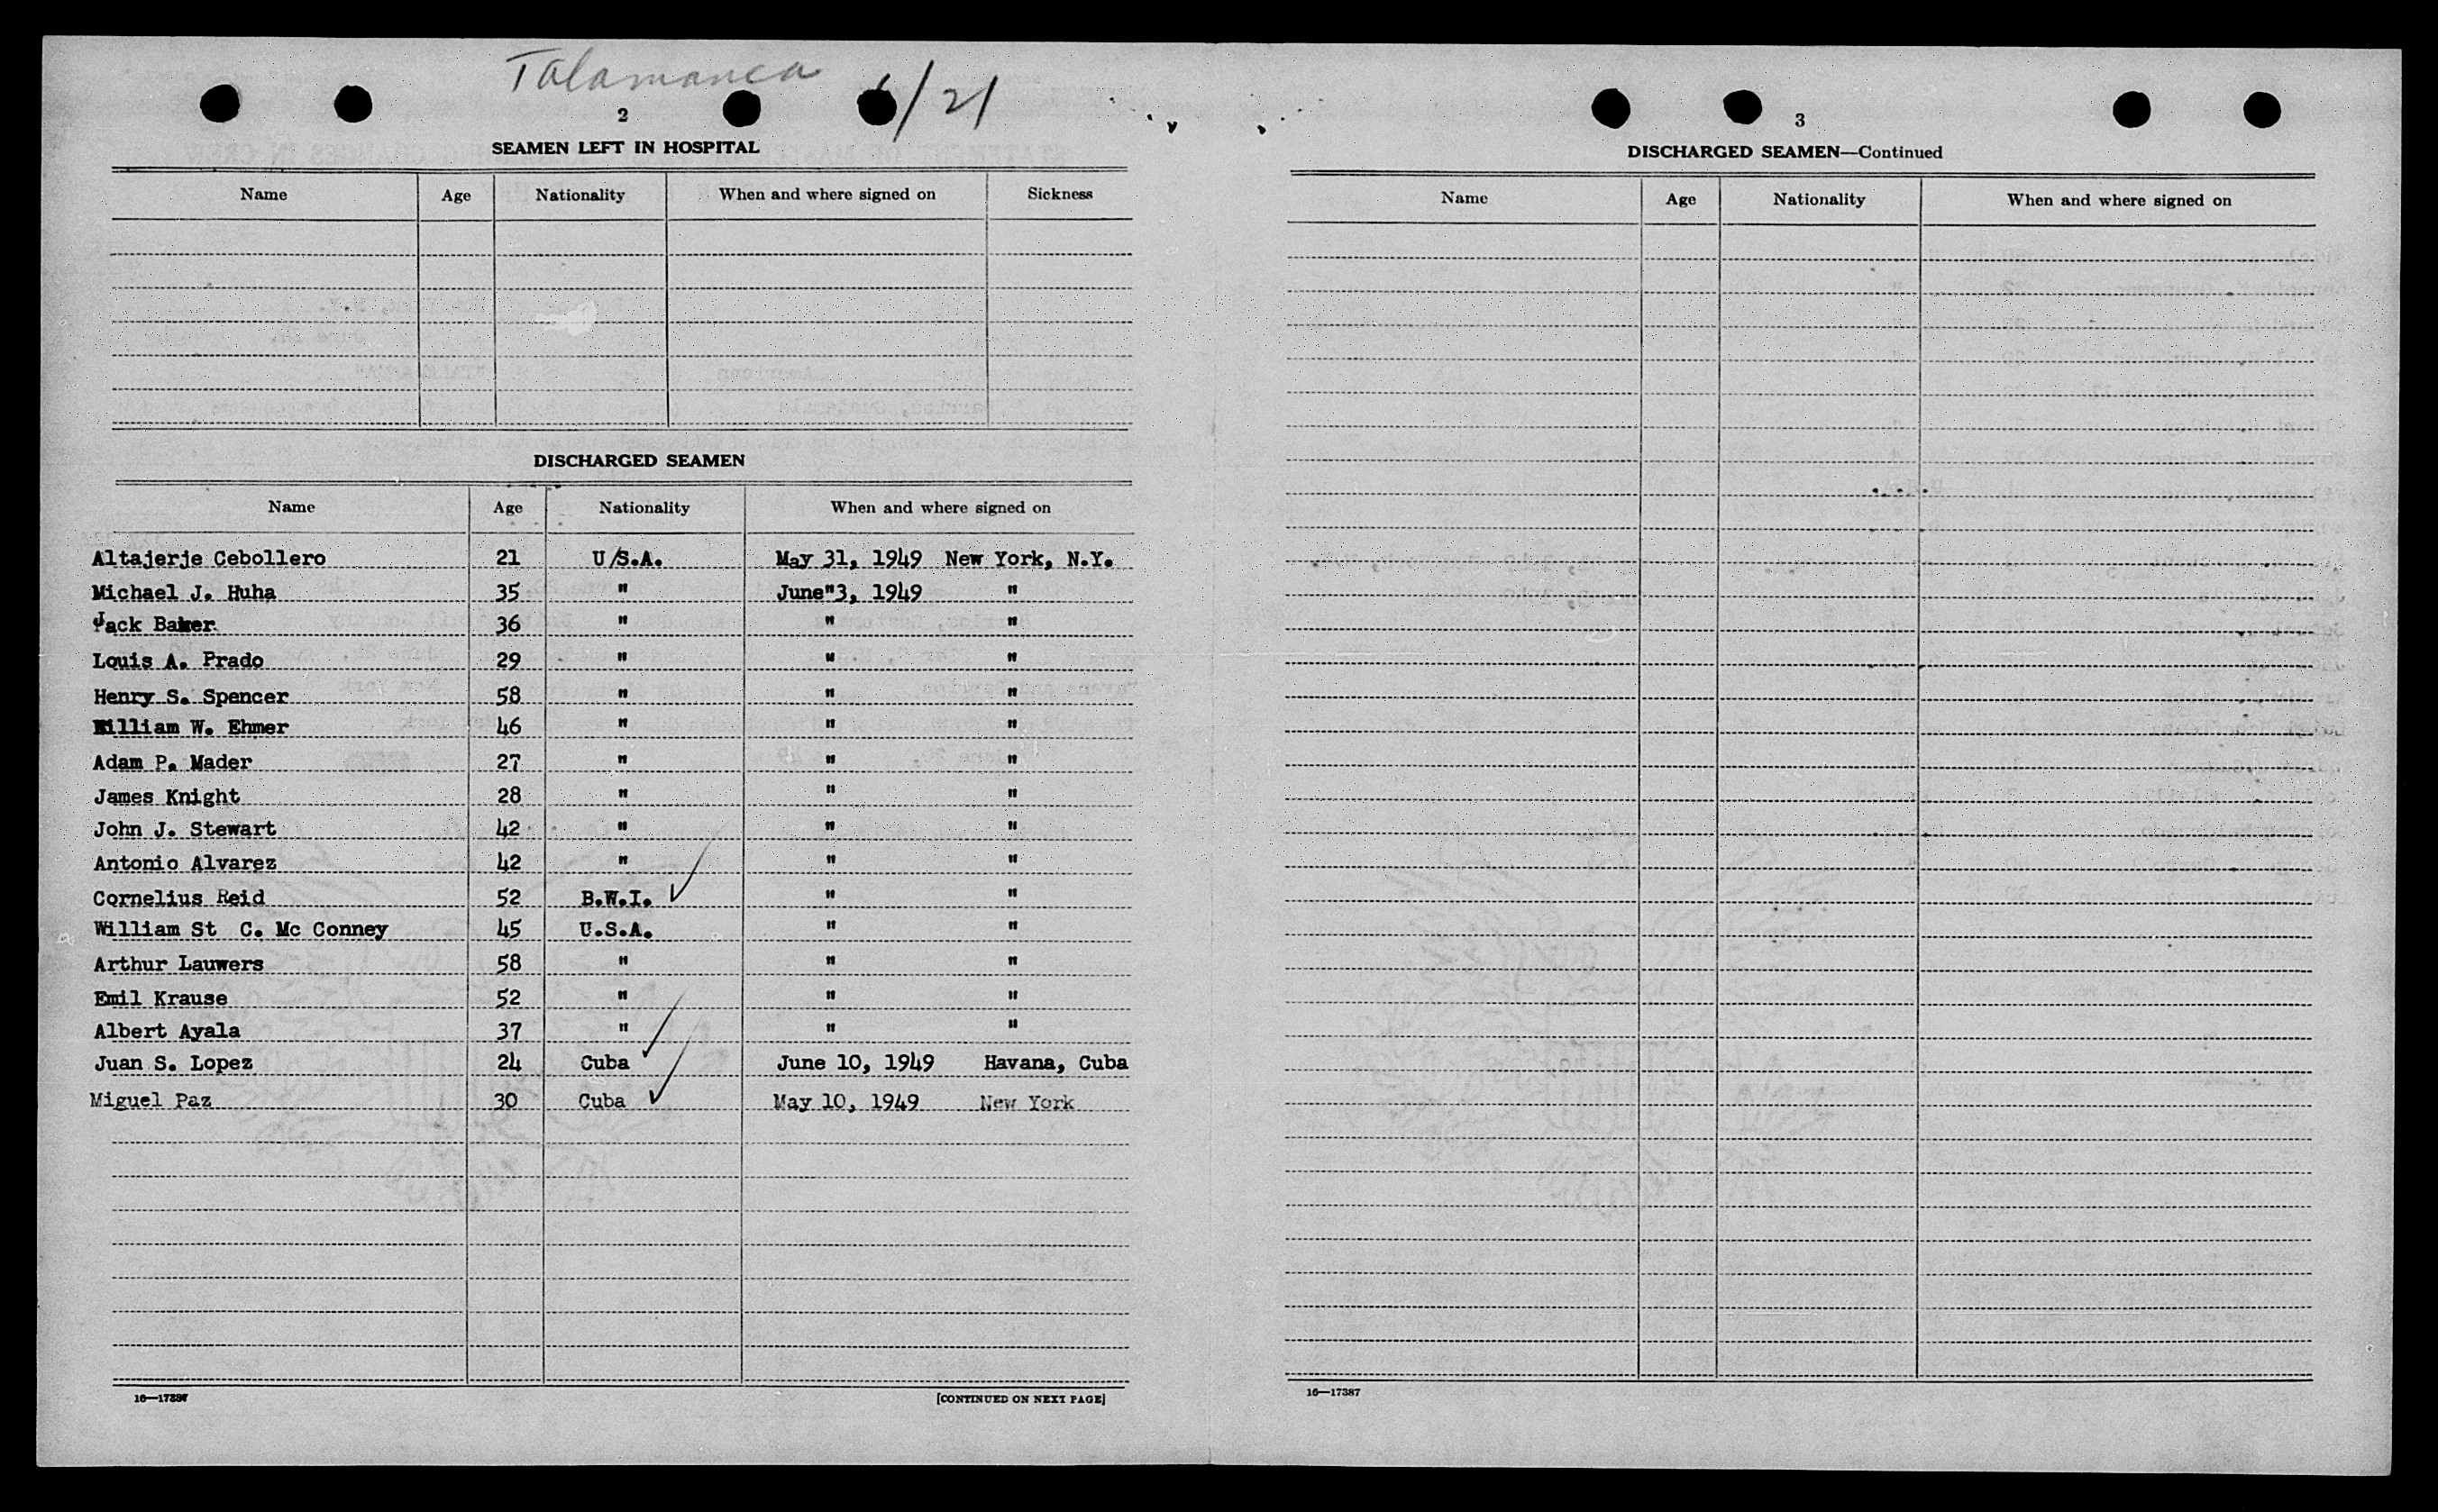 Talamanca 6/21
2
SEAMEN LEFT IN HOSPITAL
Name Age Nationality When and where signed on Sickness
DISCHARGED SEAMEN
Name Age Nationality When and where signed on
Altajerje Cebollero 21 U/S.A. May 31, 1949 New York, N.Y.
Michael J. Huha 35 " June"3, 1949 "
Jack Baker 36 " " "
Louis A. Prado 29 " " "
Henry S. Spencer 58 " " "
William W. Ehmer 46 " " "
Adam P. Mader 27 " " "
James Knight 28 " " "
John J. Stewart 42 " " "
Antonio Alvarez 42 " " "
Cornelius Reid 52 B.W.I. ✓ " "
William St C. Mc Conney 45 U.S.A. " "
Arthur Lauwers 58 " " "
Emil Krause 52 " " "
Albert Ayala 37 " " "
Juan S. Lopez 24 Cuba ✓ June 10, 1949 Havana, Cuba
Miguel Paz 30 Cuba ✓ May 10, 1949 New York
16—17387 [CONTINUED ON NEXT PAGE]
3
DISCHARGED SEAMEN—Continued
Name Age Nationality When and where signed on
16—17387